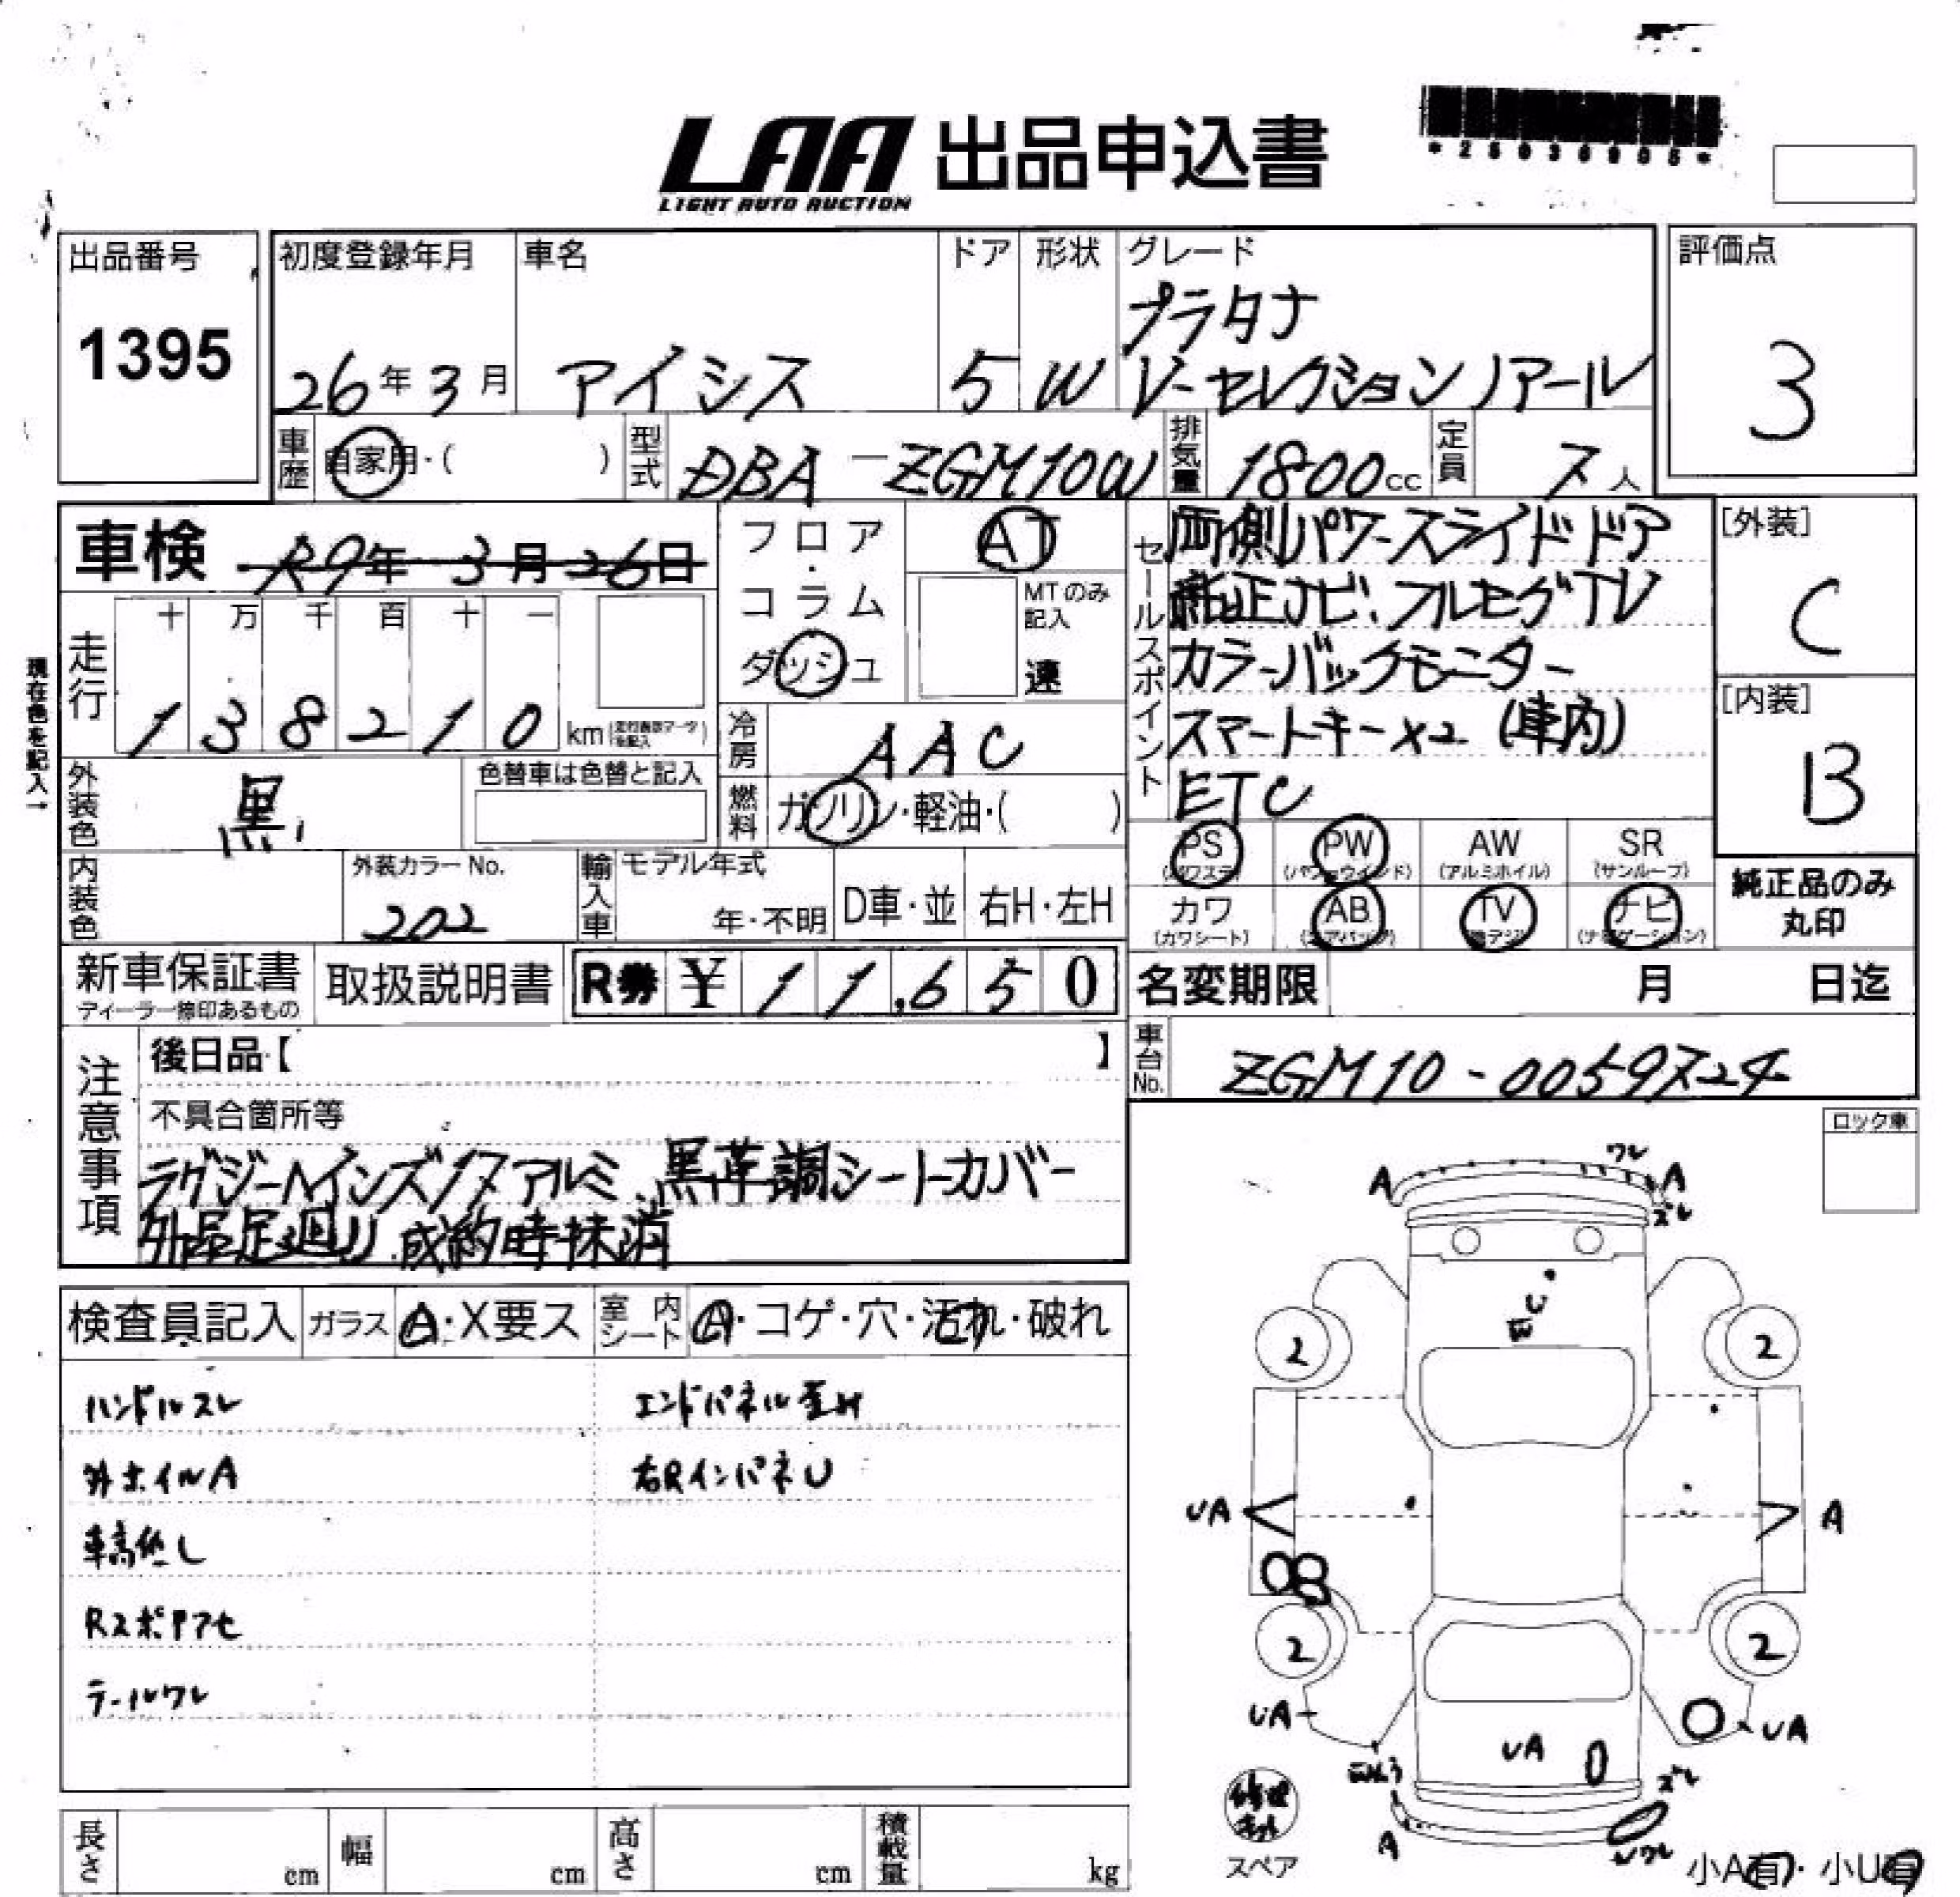 LAA 出品申込書
LIGHT AUTO AUCTION
出品番号
1395
初度登録年月
26年3月
車名
アイシス
ドア
5
形状
W
グレード
プラタナ
V-セレクションノアール
評価点
3
車歴
自家用・( )
型式
DBA-ZGM10W
排気量
1800cc
定員
7人
車検 R9年3月26日
フロア・コラム
ダッシュ
AT
MTのみ記入
速
セールスポイント
両側パワースライドドア
純正ナビ、フルセグTV
カラーバックモニター
スマートキーx2 (車内)
ETC
[外装]
C
[内装]
B
現在色を記入→
走行
十 万 千 百 十 一
1 3 8 2 1 0 km
冷房
AAC
燃料
ガソリン・軽油・( )
外装色
黒
色替車は色替と記入
PS
PW (パワーウインド)
AW (アルミホイル)
SR (サンルーフ)
カワ (カワシート)
AB
TV
ナビ
純正品のみ
丸印
内装色
外装カラーNo.
202
輸入車
モデル年式
年・不明
D車・並
右H・左H
新車保証書
ディーラー捺印あるもの
取扱説明書
R券 ¥11,650
名変期限 月 日迄
車台No.
ZGM10-0059724
注意事項
後日品【 】
不具合箇所等
ラグジーNインズ17アルミ、黒革調シートカバー
外品足廻り 成約時抹消
ロック車
検査員記入
ガラス A・X要ス
室内シート A・コゲ・穴・汚れ・破れ
ハンドルスレ
エンドパネル歪み
外ホイルA
右RインパネU
車高低し
Rスポイラアセ
テールワレ
A ワレ A
ズレ
U
2 2
UA A
2 2
UA UA
UA
ズレ
A
ワレ
修理キット
スペア
小A有・小U有
長さ cm
幅 cm
高さ cm
積載量 kg